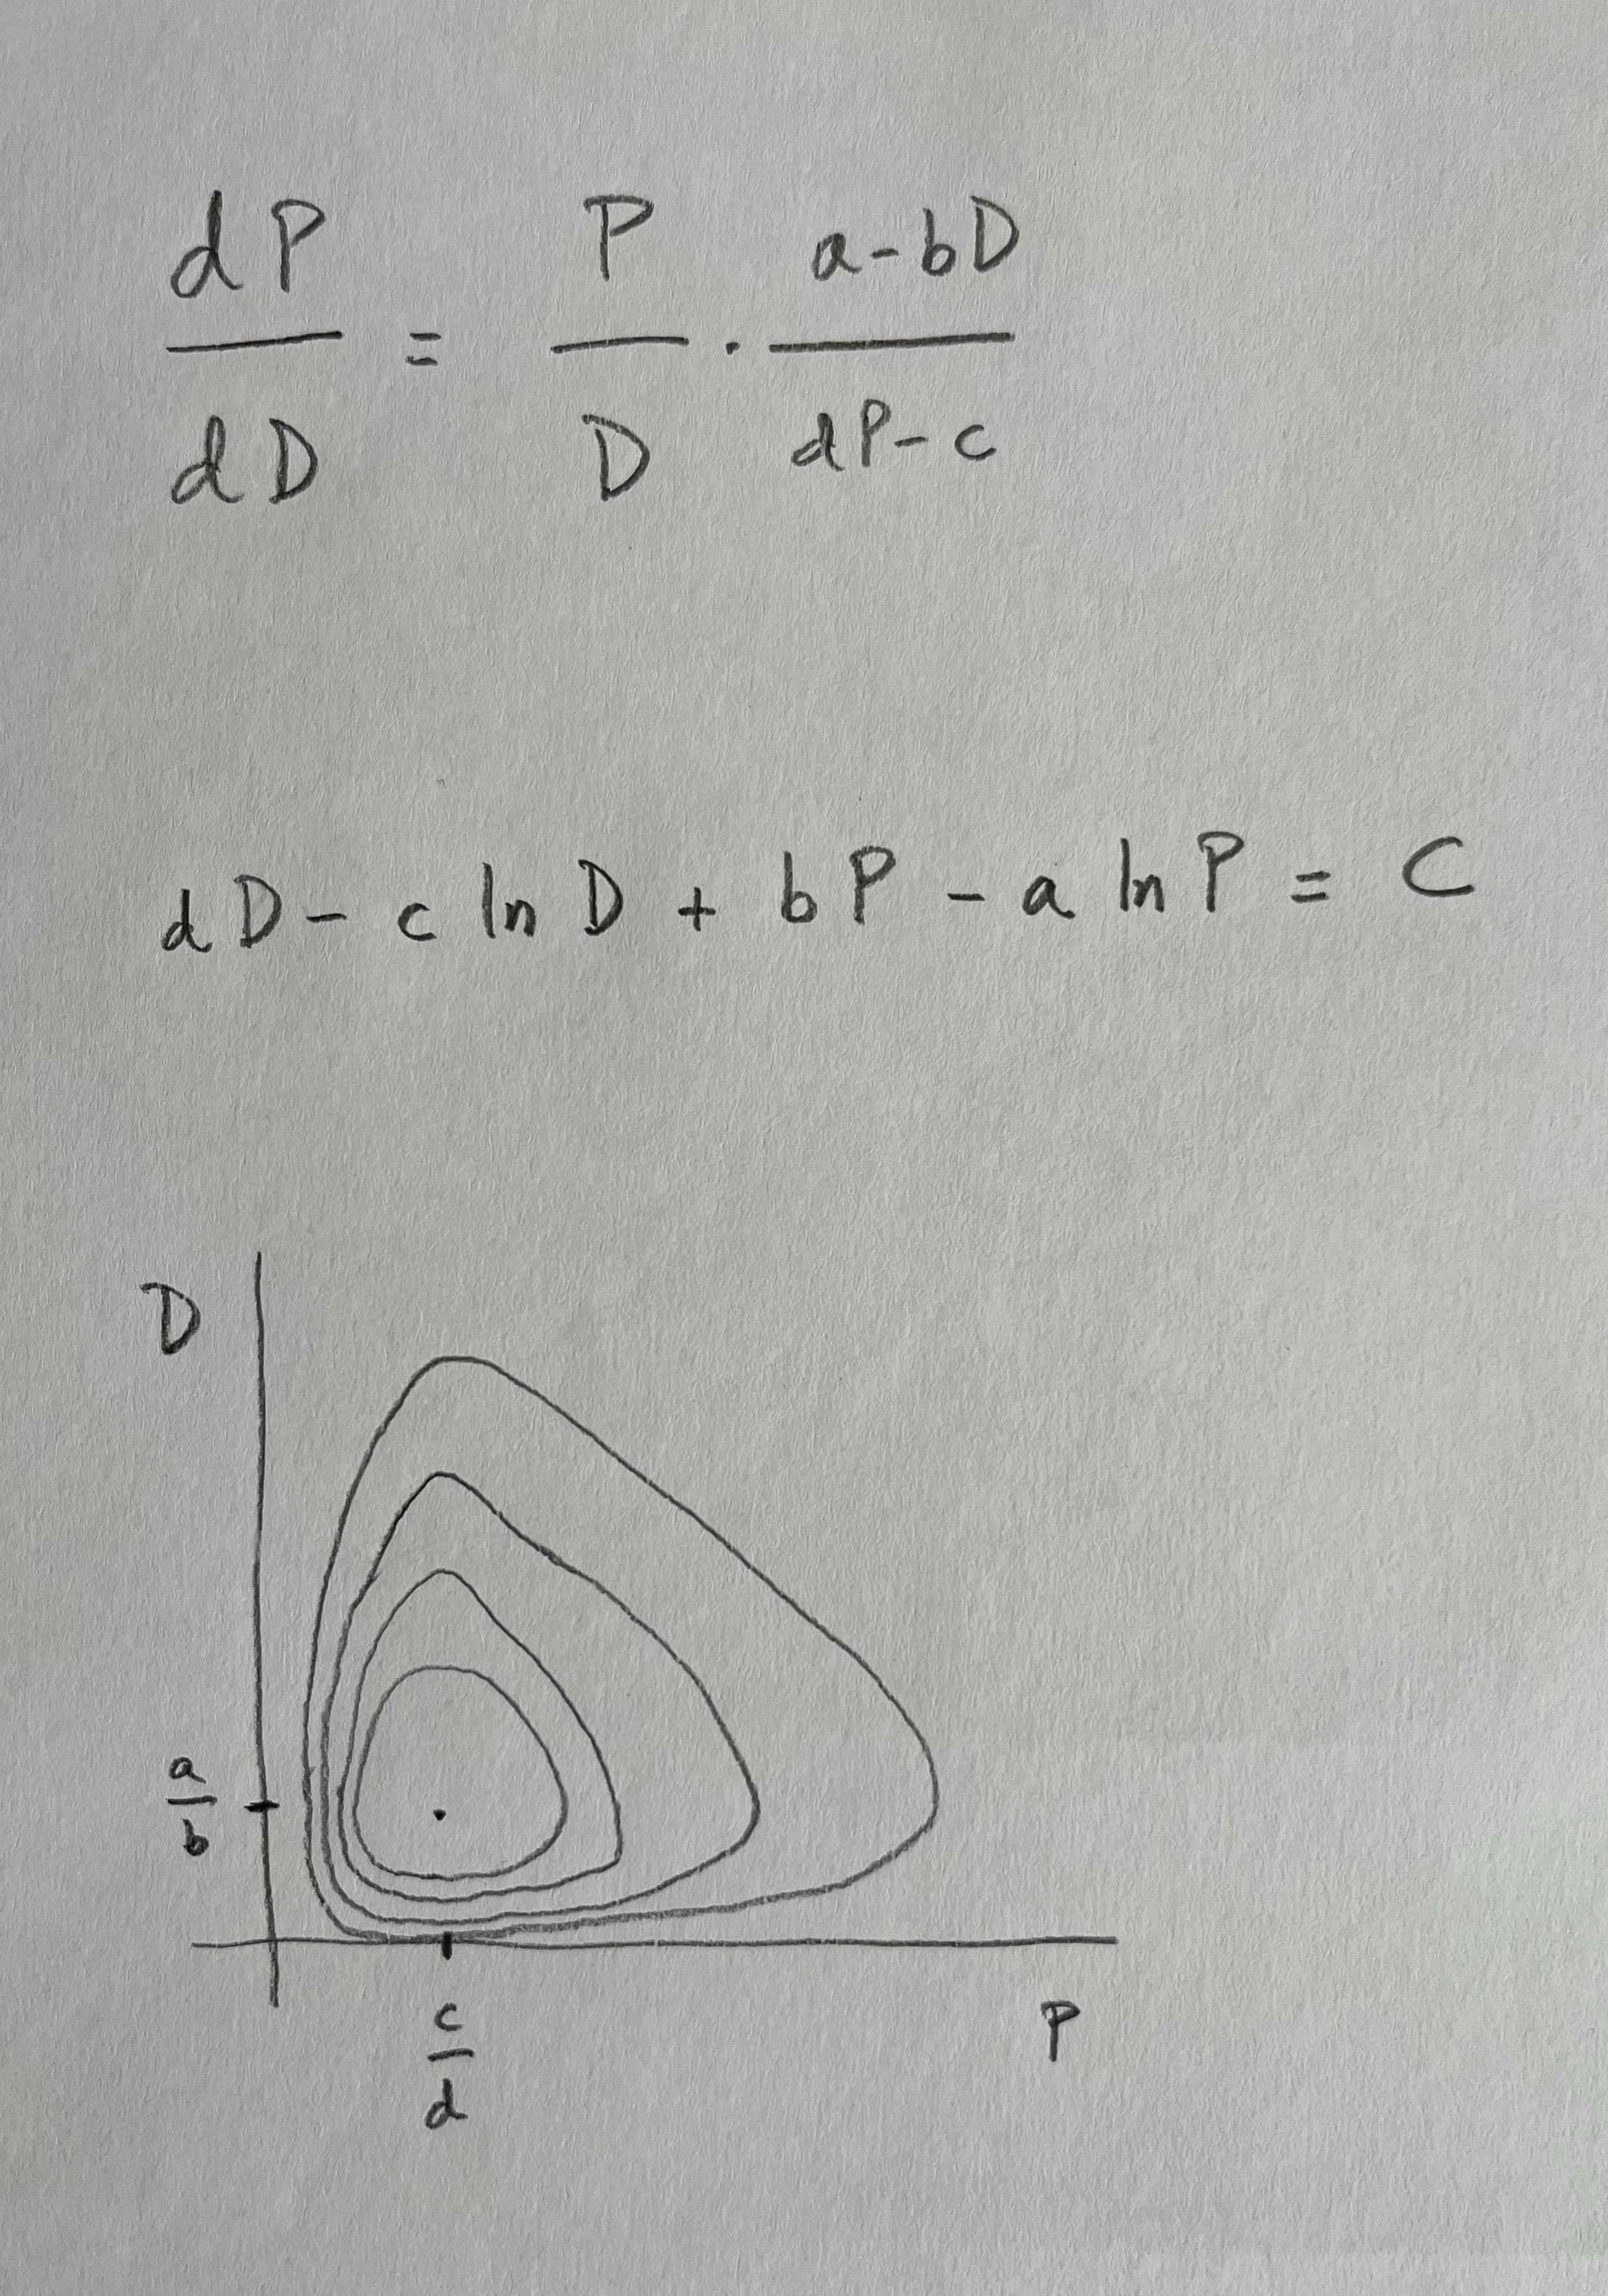 dP/dD = P/D · (a-bD)/(dP-c)
dD - c ln D + bP - a ln P = C
D
a/b
c/d
P